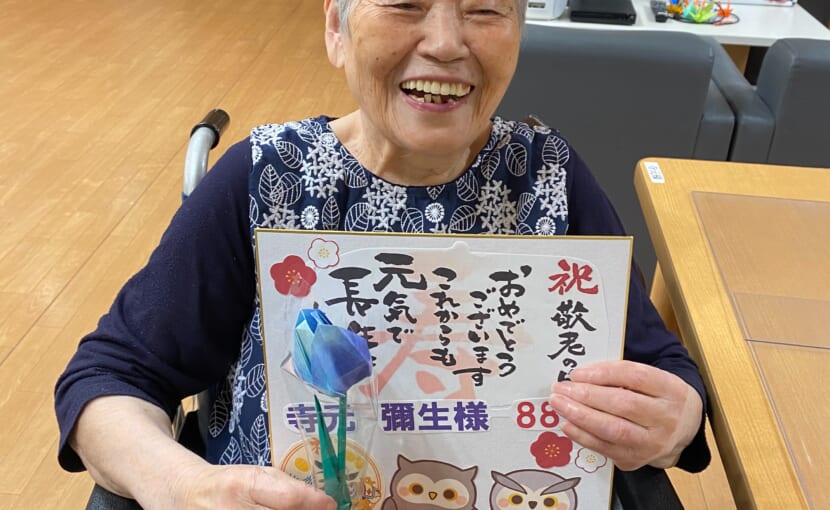 祝 敬老の
おめでとう
ございます
これからも
元気で
長生
寿
寺元 彌生様 88